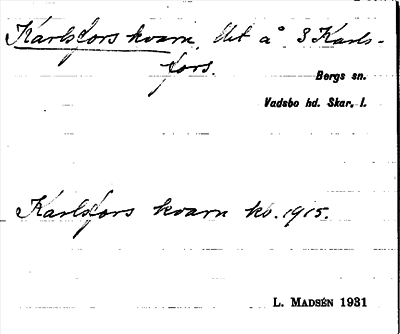 Karlsfors kvarn, det å 3 Karls-
fors.
Bergs sn.
Vadsbo hd. Skar. l.
Karlsfors kvarn kb. 1915.
L. MADSÉN 1931